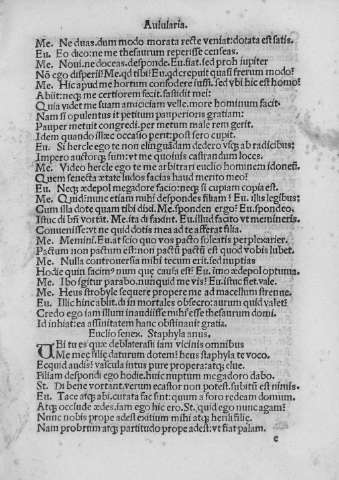 Aulularia.
Me. Ne duas. dum modo morata recte veniat: dotata est satis.
Eu. Eo dico: ne me thesaurum reperisse censeas.
Me. Noui. ne doceas. desponde. Eu. fiat. sed proh iupiter
Nõ ego disperii? Me. qd tibi? Eu. qd crepuit quasi ferrum modo?
Me. Hic apud me hortum confodere iussi. sed vbi hic est homo?
Abiit: neqȝ me certiorem fecit. fastidit mei:
Quia videt me suam amiciciam velle. more hominum facit.
Nam si opulentus it petitum pauperioris gratiam:
Pauper metuit congredi. per metum male rem gerit.
Idem quando illæc occasio perit: post sero cupit.
Eu. Si hercle ego te non elinguãdam dedero vsqȝ ab radicibus:
Impero auctorqȝ sum: vt me quoiuis castrandum loces.
Me. Video hercle ego te me arbitrari euclio hominem idoneũ.
Quem senecta ætate ludos facias haud merito meo?
Eu. Neqȝ ædepol megadore facio: neqȝ si cupiam copia est.
Me. Quid: nunc etiam mihi despondes filiam? Eu. illis legibus:
Cum illa dote quam tibi dixi. Me. sponden ergo? Eu. spondeo.
Istuc di bñ vortãt. Me. ita di faxint. Eu. illud facito vt memineris.
Conuenisse: vt ne quid dotis mea ad te afferat filia.
Me. Memini. Eu. at scio quo vos pacto soleatis perplexarier.
Pactum non pactum est: non pactũ pactũ est quod vobis lubet.
Me. Nulla controuersia mihi tecum erit. sed nuptias
Hodie quin faciamꝰ num quæ causa est? Eu. imo ædepol optuma.
Me. Ibo igitur parabo. nunquid me vis? Eu. istuc fiet. vale.
Me. Heus strobyle sequere propere me ad macellum strenne.
Eu. Illic hinc abiit. di in mortales obsecro: aurum quid valet?
Credo ego iam illum inaudisse mihi esse thesaurum domi.
Id inhiat: ea affinitatem hanc obstinauit gratia.
Euclio senex. Staphyla anus.
Vbi tu es quæ deblaterasti iam vicinis omnibus
Me meæ filiæ daturum dotem? heus staphyla te voco.
Ecquid audis? vascula intus pure propera: atqȝ elue.
Filiam despondi ego hodie. huic nuptum megadoro dabo.
St. Di bene vortant. verum ecastor non potest. subitũ est nimis.
Eu. Tace atqȝ abi. curata fac sint: quum a foro redeam domum.
Atqȝ occlude ædes. iam ego hic ero. St. quid ego nunc agam?
Nunc nobis prope adest exitium mihi atqȝ herili filiæ.
Nam probrum atqȝ partitudo prope adest: vt fiat palam.
c